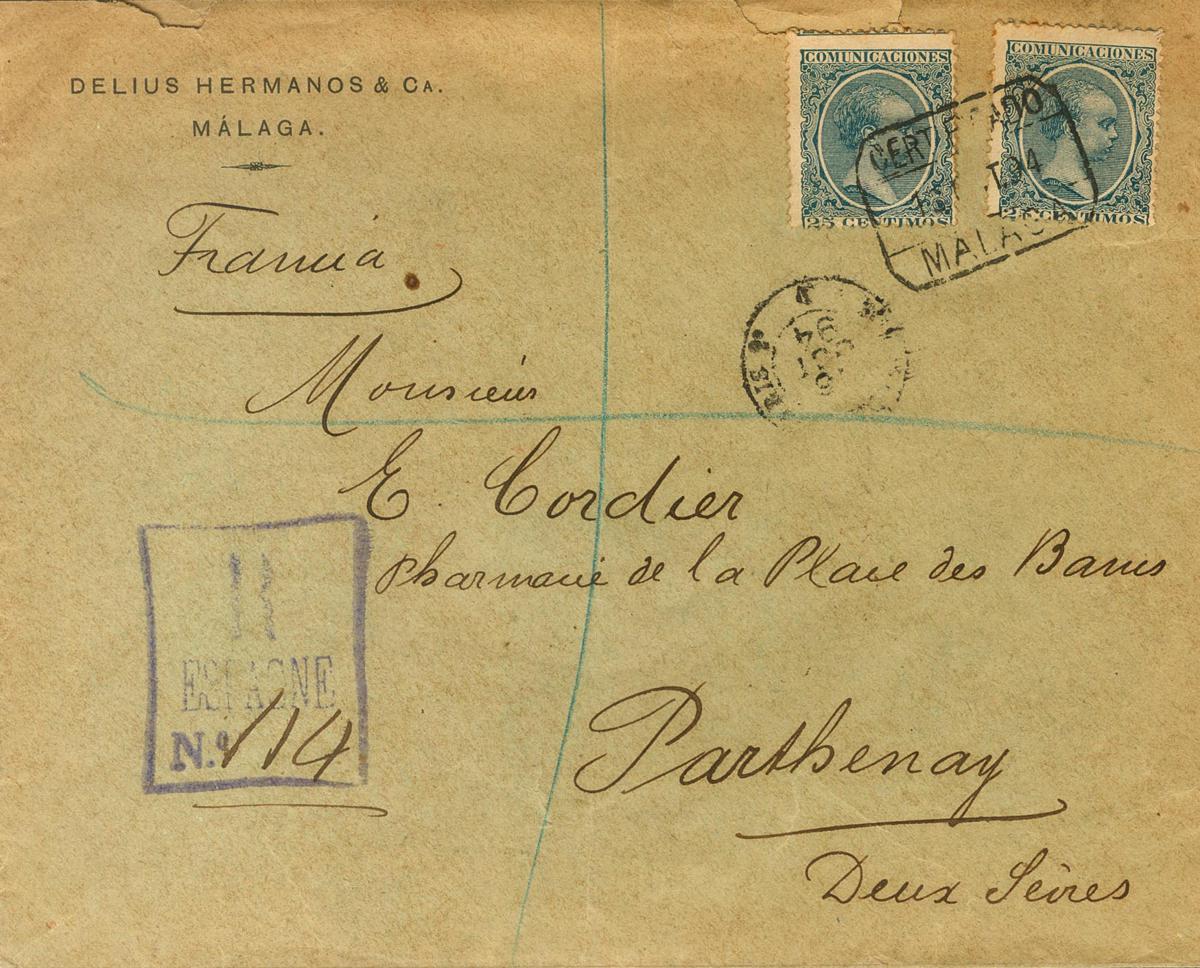 DELIUS HERMANOS & CA.
MÁLAGA.
COMUNICACIONES
25 CENTIMOS
COMUNICACIONES
25 CENTIMOS
CERTIFICADO
94
MALAGA
Francia
Monsieur
E. Cordier
Pharmacie de la Place des Bancs
R
ESPAGNE
N.º 114
Parthenay
Deux Sèvres